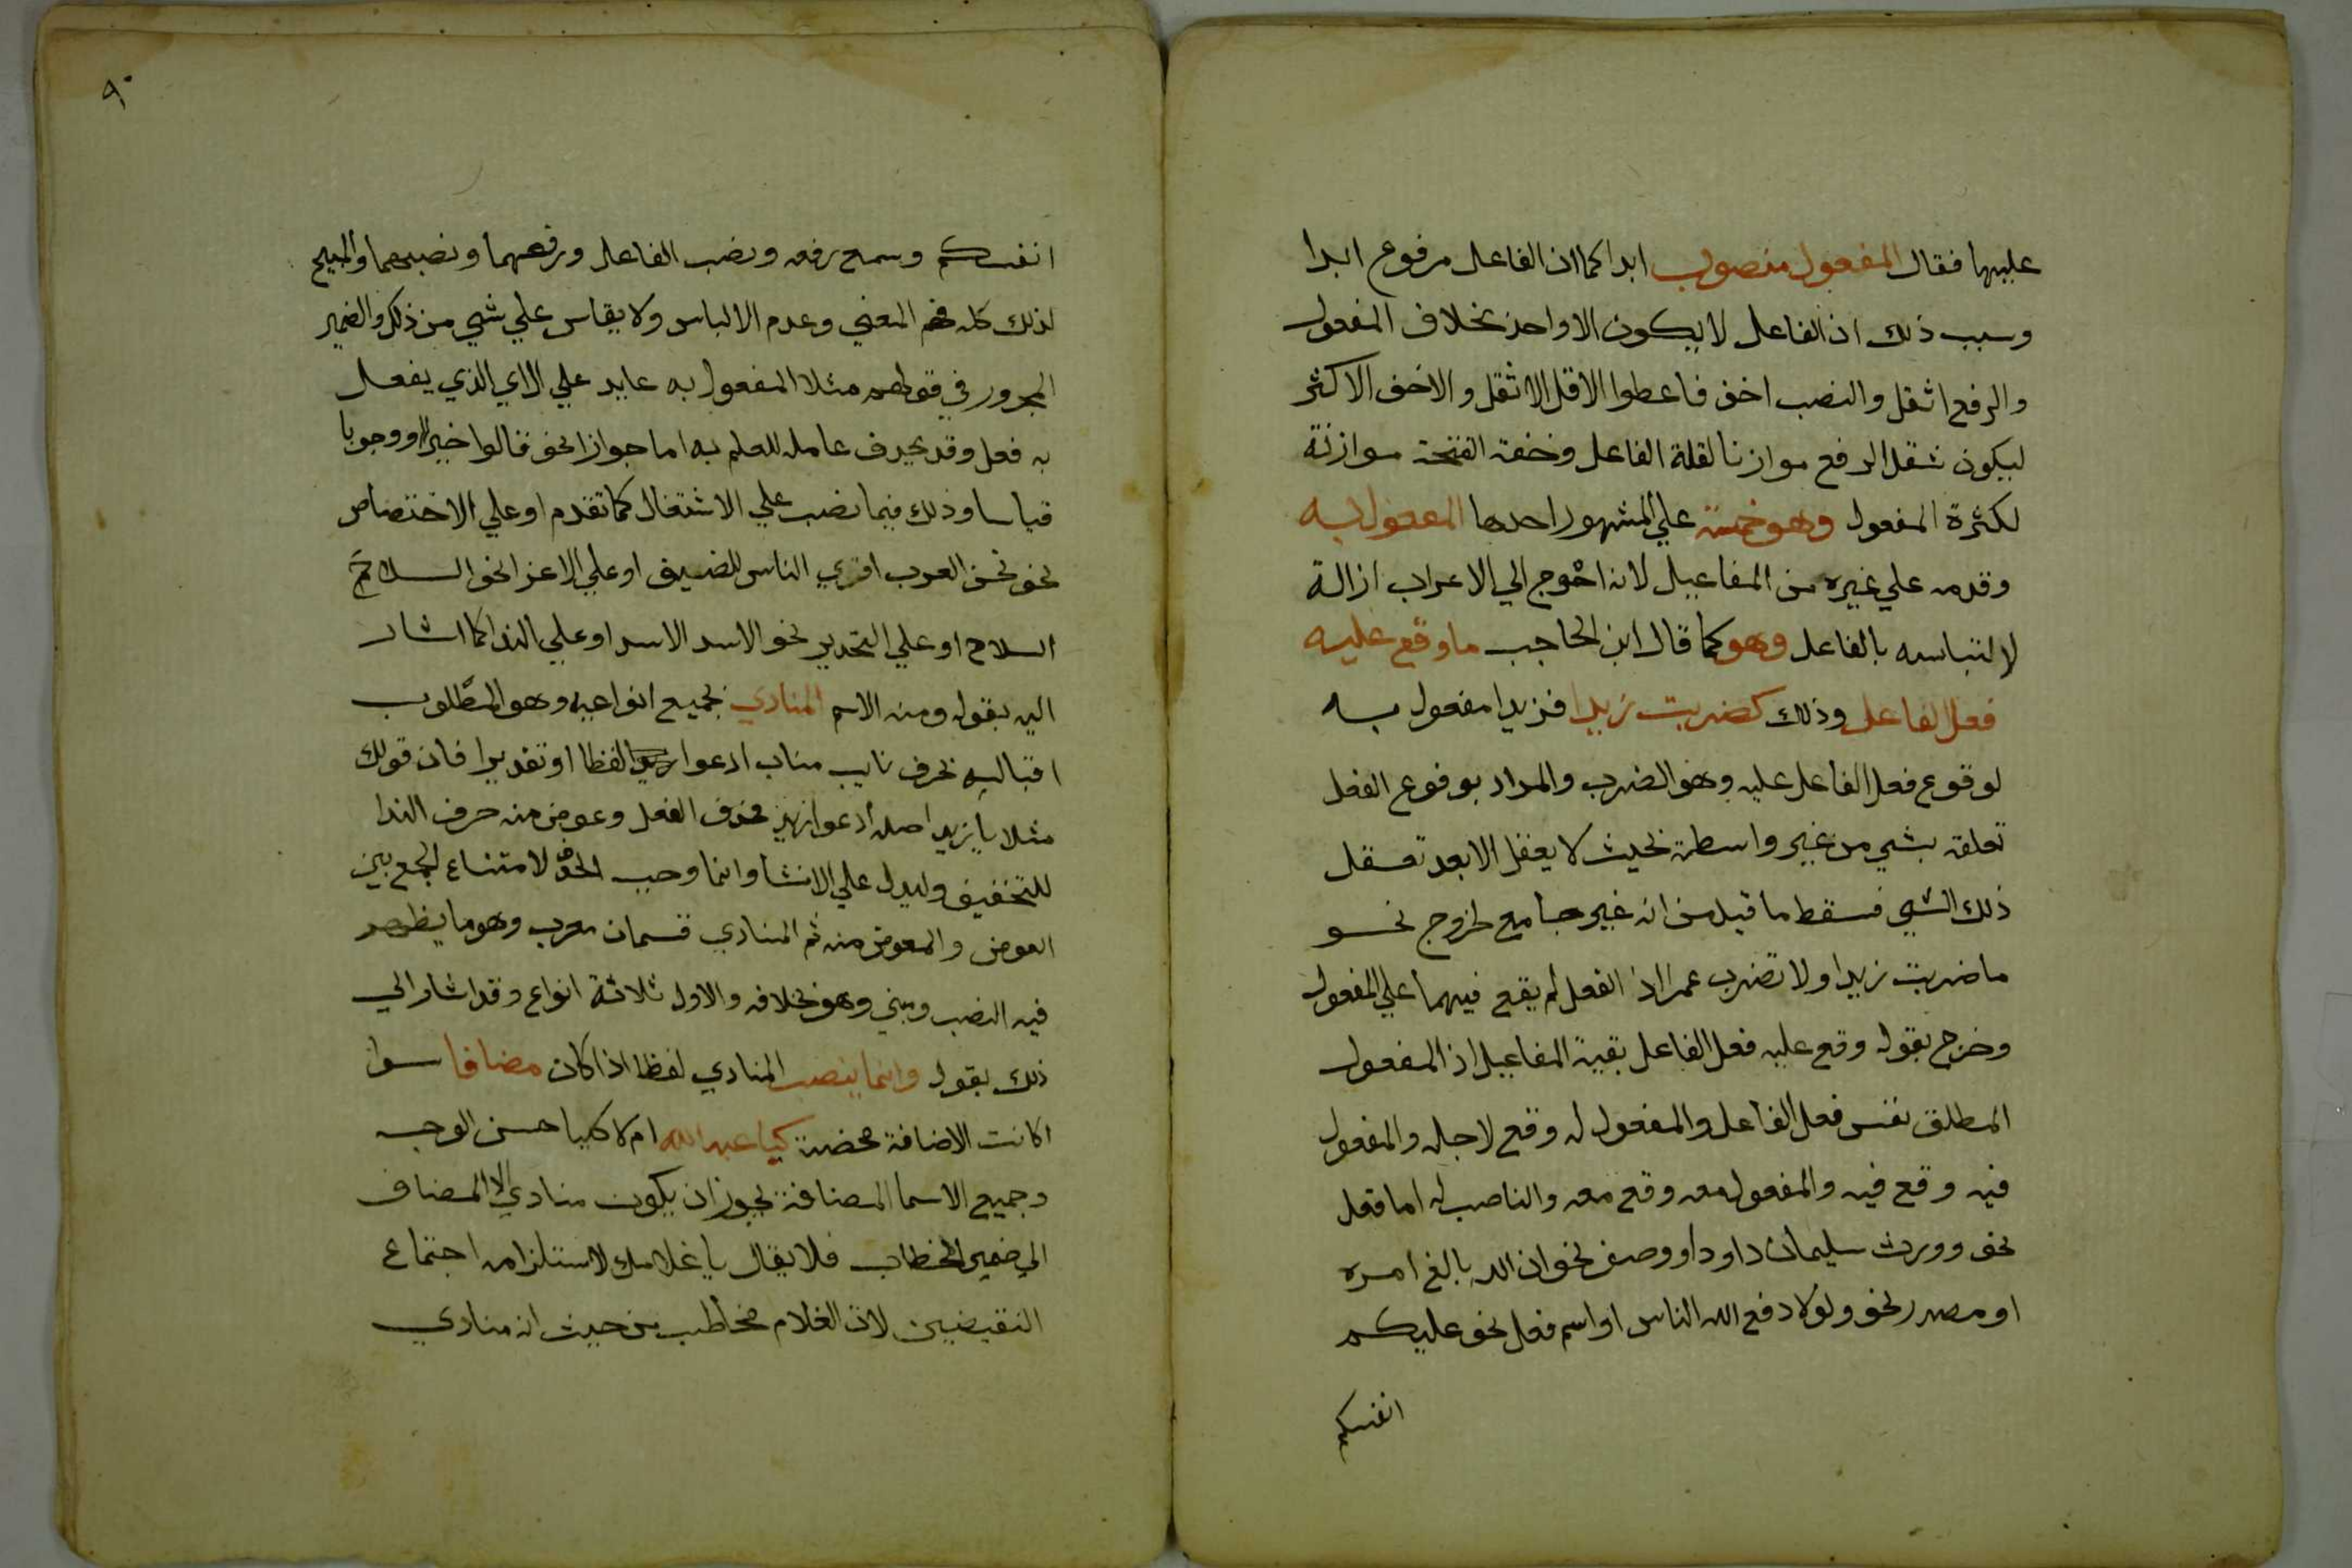 عليها فقال المفعول منصوب ابدا كما ان الفاعل مرفوع ابدا
وسبب ذلك ان الفاعل لا يكون الا واحد بخلاف المفعول
والرفع اثقل والنصب اخف فاعطوا الاقل الاثقل والاخف الاكثر
ليكون ثقل الرفع موازنا لقلة الفاعل وخفة الفتحة موازنة
لكثرة المفعول وهو خمسة على المشهور احدها المفعول به
وقدمه علي غيره من المفاعيل لانه احوج الي الاعراب ازالة
لالتباسه بالفاعل وهو كما قال ابن الحاجب ما وقع عليه
فعل الفاعل وذلك كضربت زيدا فزيدا مفعول به
لوقوع فعل الفاعل عليه وهو الضرب والمراد بوقوع الفعل
تعلقه بشي من غير واسطة بحيث لا يعقل الا بعد تعقل
ذلك الشي فسقط ما قيل من انه غير جامع لخروج نحو
ما ضربت زيدا ولا تضرب عمرا اذ الفعل لم يقع فيهما علي المفعول
وخرج بقوله وقع عليه فعل الفاعل بقية المفاعيل اذ المفعول
المطلق نفس فعل الفاعل والمفعول له وقع لاجله والمفعول
فيه وقع فيه والمفعول معه وقع معه والناصب له اما فعل
نحو وورث سليمان داود او وصف نحو ان الله بالغ امره
او مصدر نحو ولولا دفع الله الناس او اسم فعل نحو عليكم
انفسكم
٩٠
انفسكم وسمع رفعه ونصب الفاعل ورفعهما ونصبهما والمبيح
لذلك كله فهم المعني وعدم الالباس ولا يقاس علي شي من ذلك والضمير
المجرور في قولهم مثلا المفعول به عايد علي ال اي الذي يفعل
به فعل وقد يحذف عامله للعلم به اما جوازا نحو قالوا خيرا او وجوبا
قياسا وذلك فيما نصب علي الاشتغال كما تقدم او علي الاختصاص
نحو نحن العرب اقري الناس للضيف او علي الاغرا نحو السلاح
السلاح او علي التحذير نحو الاسد الاسد او علي الندا كما اشار
اليه بقوله ومنه الاسم المنادي بجميع انواعه وهو المطلوب
اقباله بحرف نايب مناب ادعوا لفظا او تقديرا فان قولك
مثلا يا زيد اصله ادعوا زيد فحذف الفعل وعوض منه حرف الندا
للتخفيف وليدل علي الانشا وانما وجب الحذف لامتناع الجمع بين
العوض والمعوض منه ثم المنادي قسمان معرب وهو ما يظهر
فيه النصب ومبني وهو بخلافه والاول ثلاثة انواع وقد اشار الي
ذلك بقوله وانما ينصب المنادي لفظا اذا كان مضافا سوا
اكانت الاضافة محضة كيا عبد الله ام لا كيا حسن الوجه
وجميع الاسما المضافة يجوز ان يكون منادي الا المضاف
الي ضمير الخطاب فلا يقال يا غلامك لاستلزامه اجتماع
النقيضين لان الغلام مخاطب من حيث انه منادي